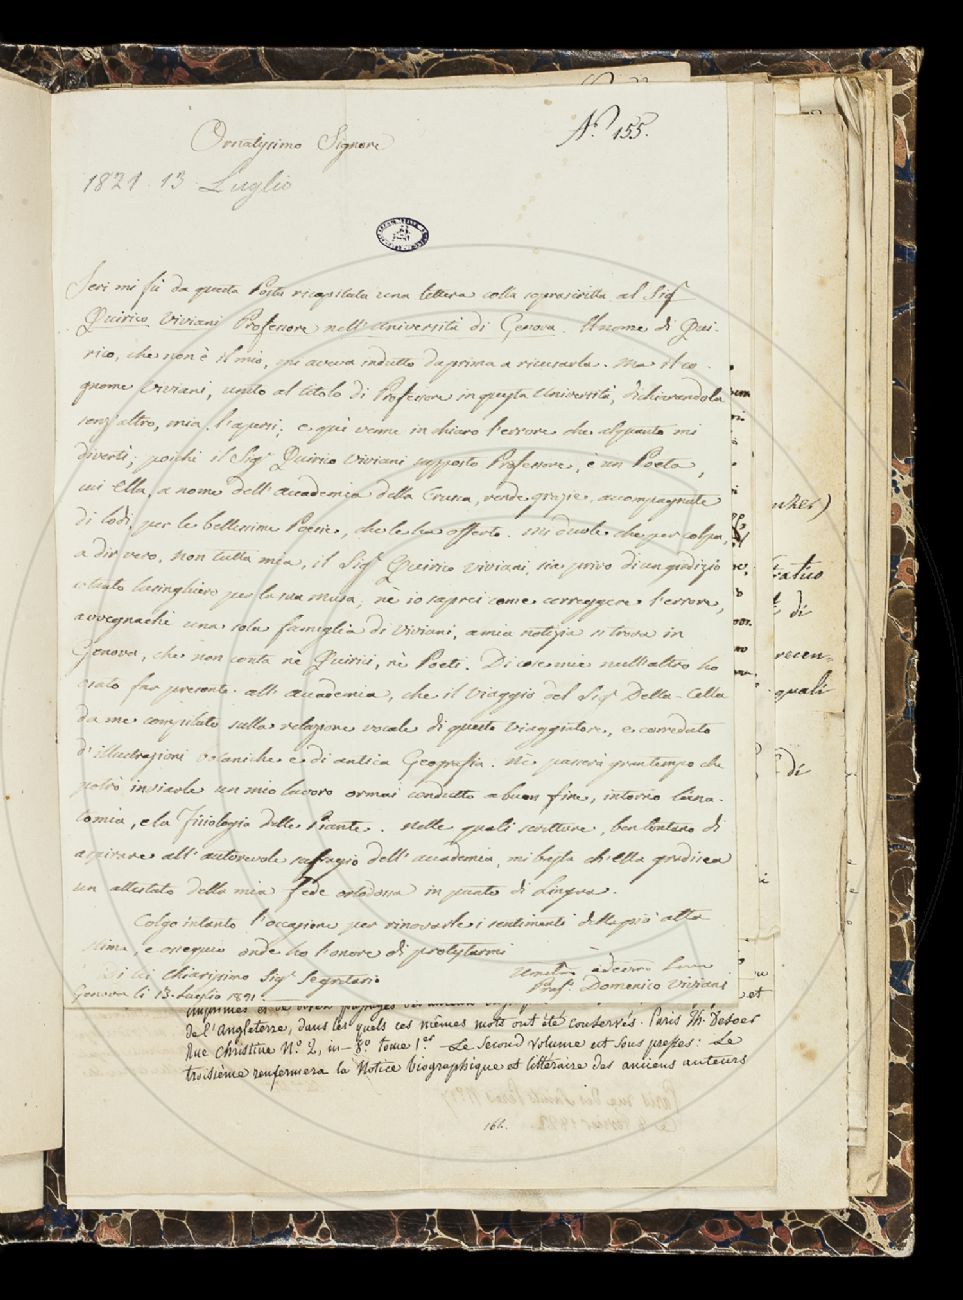 N.º 155.
Ornatissimo Signore
1821. 13 Luglio
Ieri mi fù da questa Posta ricapitata una lettera colla soprascritta al Sigr
Quirico Viviani Professore nell'Università di Genova. Il nome di Qui-
rico, che non è il mio, mi aveva indotto da prima a ricusarla. Ma il co-
gnome Viviani, unito al titolo di Professore in questa Università, dichiarandola
senz'altro, mia, l'apersi; e qui venne in chiaro l'errore che alquanto mi
divertì; poichè il Sigr Quirico Viviani supposto Professore, è un Poeta,
cui Ella, a nome dell'Accademia della Crusca, rende grazie, accompagnate
di lodi, per le bellissime Poesie, che le ha offerto. Mi duole che per colpa,
a dir vero, non tutta mia, il Sigr Quirico Viviani, sia privo di un giudizio
cotanto lusinghiero per la sua Musa, nè io saprei come correggere l'errore,
avvegnachè una sola famiglia di Viviani, a mia notizia si trova in
Genova, che non conta nè Quirici, nè Poeti. Di cose mie null'altro ho
osato far presente all'Accademia, che il Viaggio del Sigr Della-Cella
da me compilato sulla relazione vocale di questo Viaggiatore, e corredato
d'illustrazioni botaniche e di antica Geografia. Nè passerà gran tempo che
potrò inviarle un mio lavoro ormai condotto a buon fine, intorno l'Ana-
tomia, e la Fisiologia delle Piante. Nelle quali scritture, ben lontano di
aspirare all'autorevole suffragio dell'Accademia, mi basta ch'Ella gradisca
un attestato della mia fede ortodossa in punto di Lingua.
Colgo intanto l'occasione per rinovarle i sentimenti della più alta
stima, e ossequio onde ho l'onore di protestarmi
Di Lei Chiarissimo Sigr Segretario
Genova li 13. Luglio 1821.
Prof. Domenico Viviani
de l'Angleterre, dans les quels ces mêmes mots ont été conservés. Paris Th. Desoer
Rue Christine N.º 2, in-8.º tome 1er - Le second volume est sous presses: Le
troisième renfermera la Notice biographique et littéraire des anciens auteurs
164.
recen-
quali
di
di